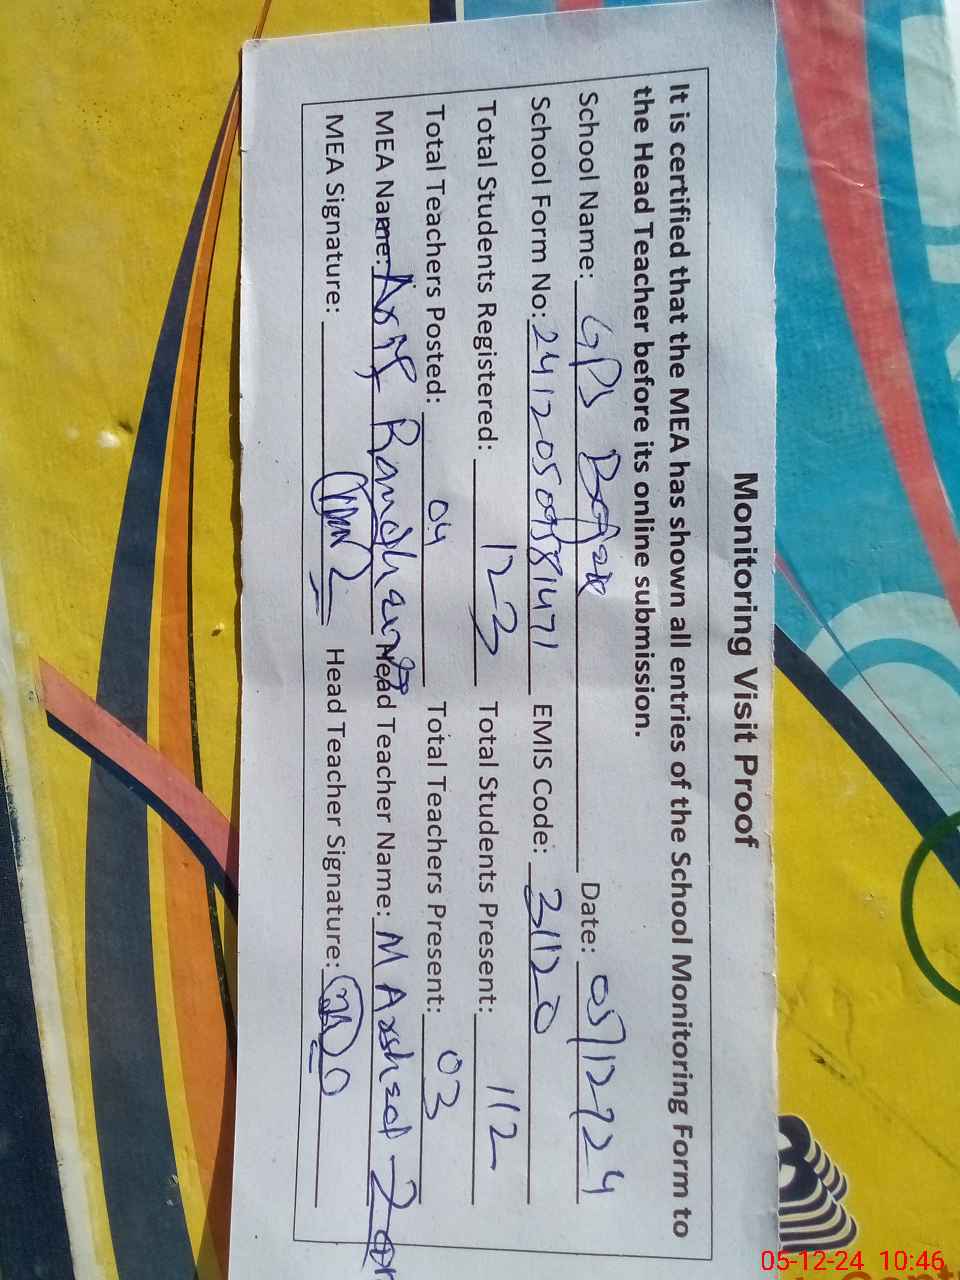 Monitoring Visit Proof
It is certified that the MEA has shown all entries of the School Monitoring Form to
the Head Teacher before its online submission.
School Name: GPS Date: 05/12/24
School Form No: EMIS Code: 31120
Total Students Registered: 123 Total Students Present: 112
Total Teachers Posted: 04 Total Teachers Present: 03
MEA Name: Arif Head Teacher Name: M Arshed
MEA Signature: Head Teacher Signature:
05-12-24 10:46